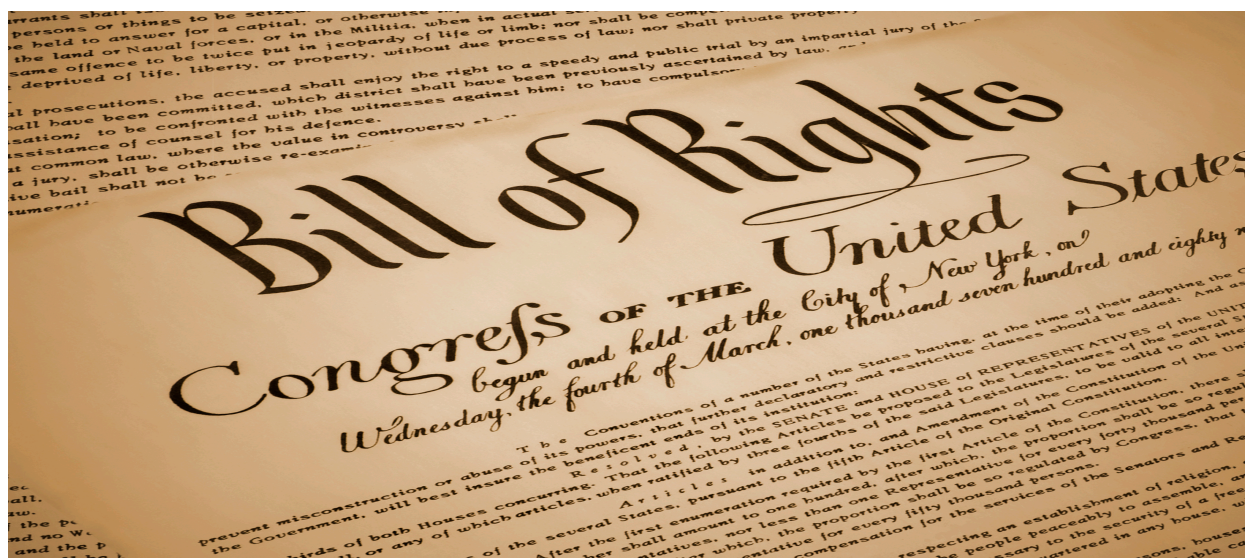 shall
persons or things to be seized
be held to answer for a capital, or otherwise
the land or Naval forces, or in the Militia, when in actual
same offence to be twice put in jeopardy of life or limb; nor shall be compe
deprived of life, liberty, or property, without due process of law; nor shall private property
al prosecutions, the accused shall enjoy the right to a speedy and public trial by an impartial jury of the
all have been committed, which district shall have been previously ascertained by law,
sation; to be confronted with the witnesses against him; to have compulsory
ssistance of counsel for his defence.
t common law, where the value in controversy
a jury, shall be otherwise re-exami
ive bail shall not be
numerati
Bill of Rights
Congreſs OF THE United States
begun and held at the City of New York, on
Wednesday, the fourth of March, one thousand seven hundred and eighty n
The Conventions of a number of the States having, at the time of their adopting the C
prevent misconstruction or abuse of its powers, that further declaratory and restrictive clauses should be added: And as
the Government, will best insure the beneficent ends of its institution;
Resolved, by the SENATE and HOUSE of REPRESENTATIVES of the UNIT
hirds of both Houses concurring. That the following Articles be proposed to the Legislatures of the several St
ll, or any of which articles, when ratified by three fourths of the said Legislatures, to be valid to all inte
Articles in addition to, and Amendment of the Constitution of the Unit
s of the several States, pursuant to the fifth Article of the Original Constitution.
After the first enumeration required by the first Article of the Constitution, there s
ber shall amount to one hundred, after which, the proportion shall be so regul
entatives, nor less than one Representative for every forty thousand per
which, the proportion shall be so regulated by Congress, that
entative for every fifty thousand persons.
compensation for the services of the Senators and Re
respecting an establishment of religion,
the people peaceably to assemble, an
ssary to the security of a free
artered in any house, w
houses